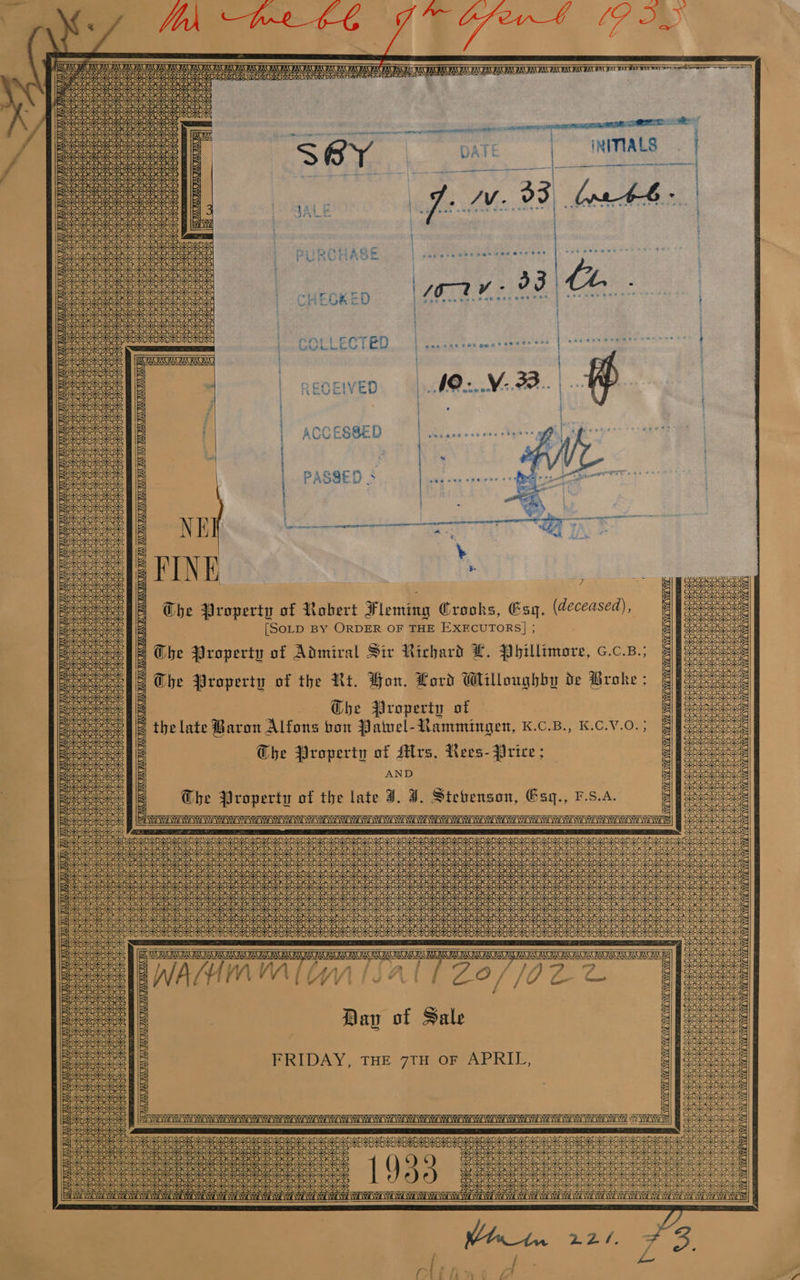 1933
SBY DATE INITIALS
SALE 7. IV. 33
PURCHASE
CHECKED 33
COLLECTED
RECEIVED 10. V. 33.
ACCESSED
PASSED
FINE
The Property of Robert Fleming Crooks, Esq. (deceased),
[SOLD BY ORDER OF THE EXECUTORS];
The Property of Admiral Sir Richard F. Phillimore, G.C.B.;
The Property of the Rt. Hon. Lord Willoughby de Broke;
The Property of
the late Baron Alfons von Pawel-Rammingen, K.C.B., K.C.V.O.;
The Property of Mrs. Rees-Price;
AND
The Property of the late J. J. Stevenson, Esq., F.S.A.
Day of Sale
FRIDAY, THE 7TH OF APRIL,
1933
221. £3.